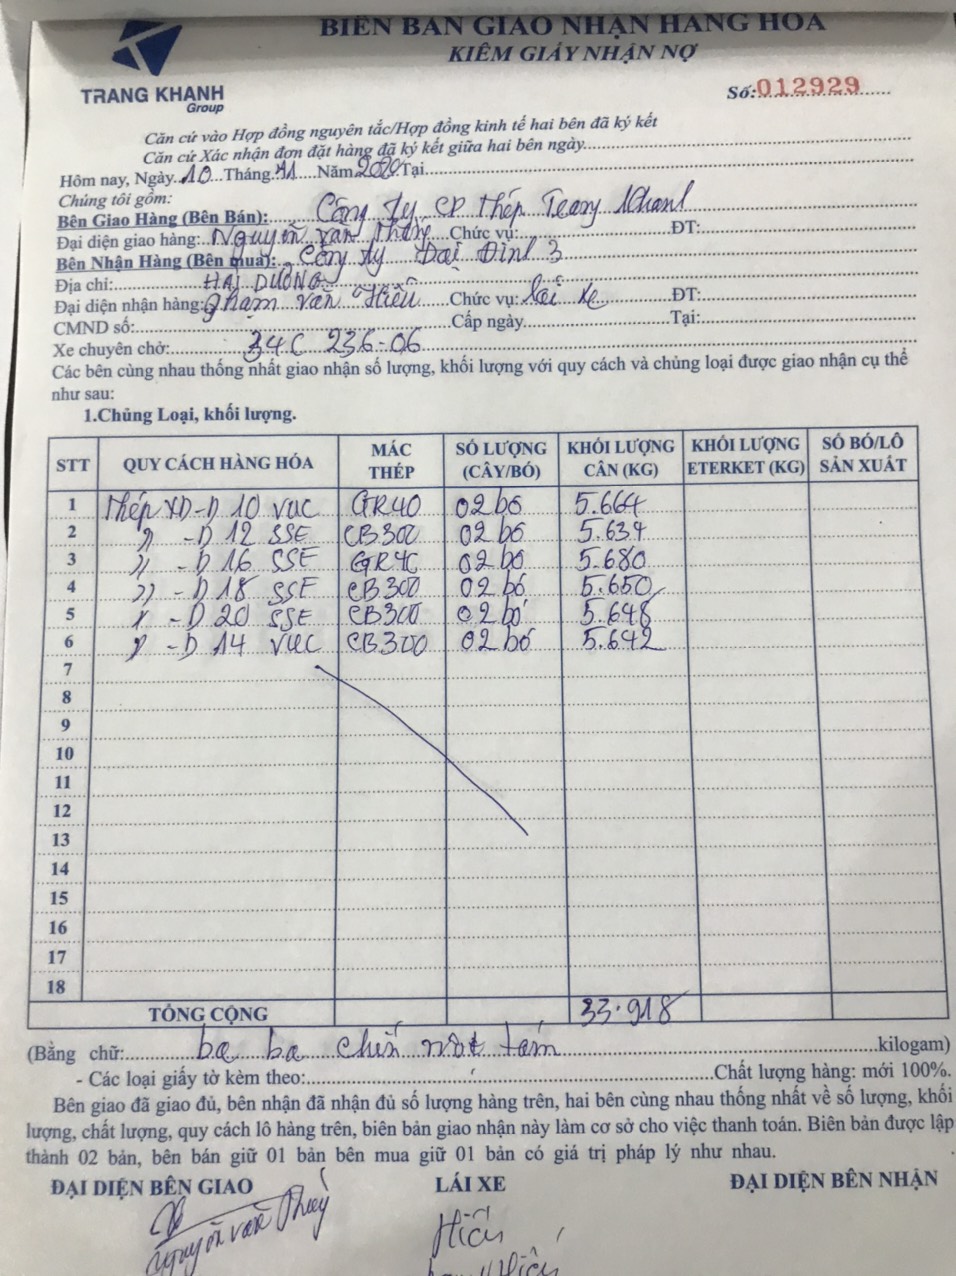 BIÊN BẢN GIAO NHẬN HÀNG HÓA
KIÊM GIẤY NHẬN NỢ
TRANG KHANH
Group
Số:012929
Căn cứ vào Hợp đồng nguyên tắc/Hợp đồng kinh tế hai bên đã ký kết
Căn cứ Xác nhận đơn đặt hàng đã ký kết giữa hai bên ngày
Hôm nay, Ngày 10 Tháng 11 Năm 2020 Tại
Chúng tôi gồm:
Bên Giao Hàng (Bên Bán): Công ty CP thép Trang Khanh
Đại diện giao hàng: Nguyễn văn Chức vụ: ĐT:
Bên Nhận Hàng (Bên mua): Công ty Đại Đình 3
Địa chỉ: HẢI DƯƠNG
Đại diện nhận hàng: Phạm văn Hiếu Chức vụ: lái xe ĐT:
CMND số: Cấp ngày Tại:
Xe chuyên chở: 34C 236-06
Các bên cùng nhau thống nhất giao nhận số lượng, khối lượng với quy cách và chủng loại được giao nhận cụ thể
như sau:
1.Chủng Loại, khối lượng.
STT QUY CÁCH HÀNG HÓA MÁC THÉP SỐ LƯỢNG (CÂY/BÓ) KHỐI LƯỢNG CÂN (KG) KHỐI LƯỢNG ETERKET (KG) SỐ BÓ/LÔ SẢN XUẤT
1 Thép XD-D 10 VUC GR40 02 bó 5.664
2 " -D 12 SSE CB300 02 bó 5.634
3 " -D 16 SSE GR40 02 bó 5.680
4 " -D 18 SSE CB300 02 bó 5.650
5 " -D 20 SSE CB300 02 bó 5.648
6 " -D 14 VUC CB300 02 bó 5.642
7
8
9
10
11
12
13
14
15
16
17
18
TỔNG CỘNG 33.918
(Bằng chữ: ba ba chín một tám kilogam)
- Các loại giấy tờ kèm theo: Chất lượng hàng: mới 100%.
Bên giao đã giao đủ, bên nhận đã nhận đủ số lượng hàng trên, hai bên cùng nhau thống nhất về số lượng, khối
lượng, chất lượng, quy cách lô hàng trên, biên bản giao nhận này làm cơ sở cho việc thanh toán. Biên bản được lập
thành 02 bản, bên bán giữ 01 bản bên mua giữ 01 bản có giá trị pháp lý như nhau.
ĐẠI DIỆN BÊN GIAO LÁI XE ĐẠI DIỆN BÊN NHẬN
Nguyễn văn Hiếu